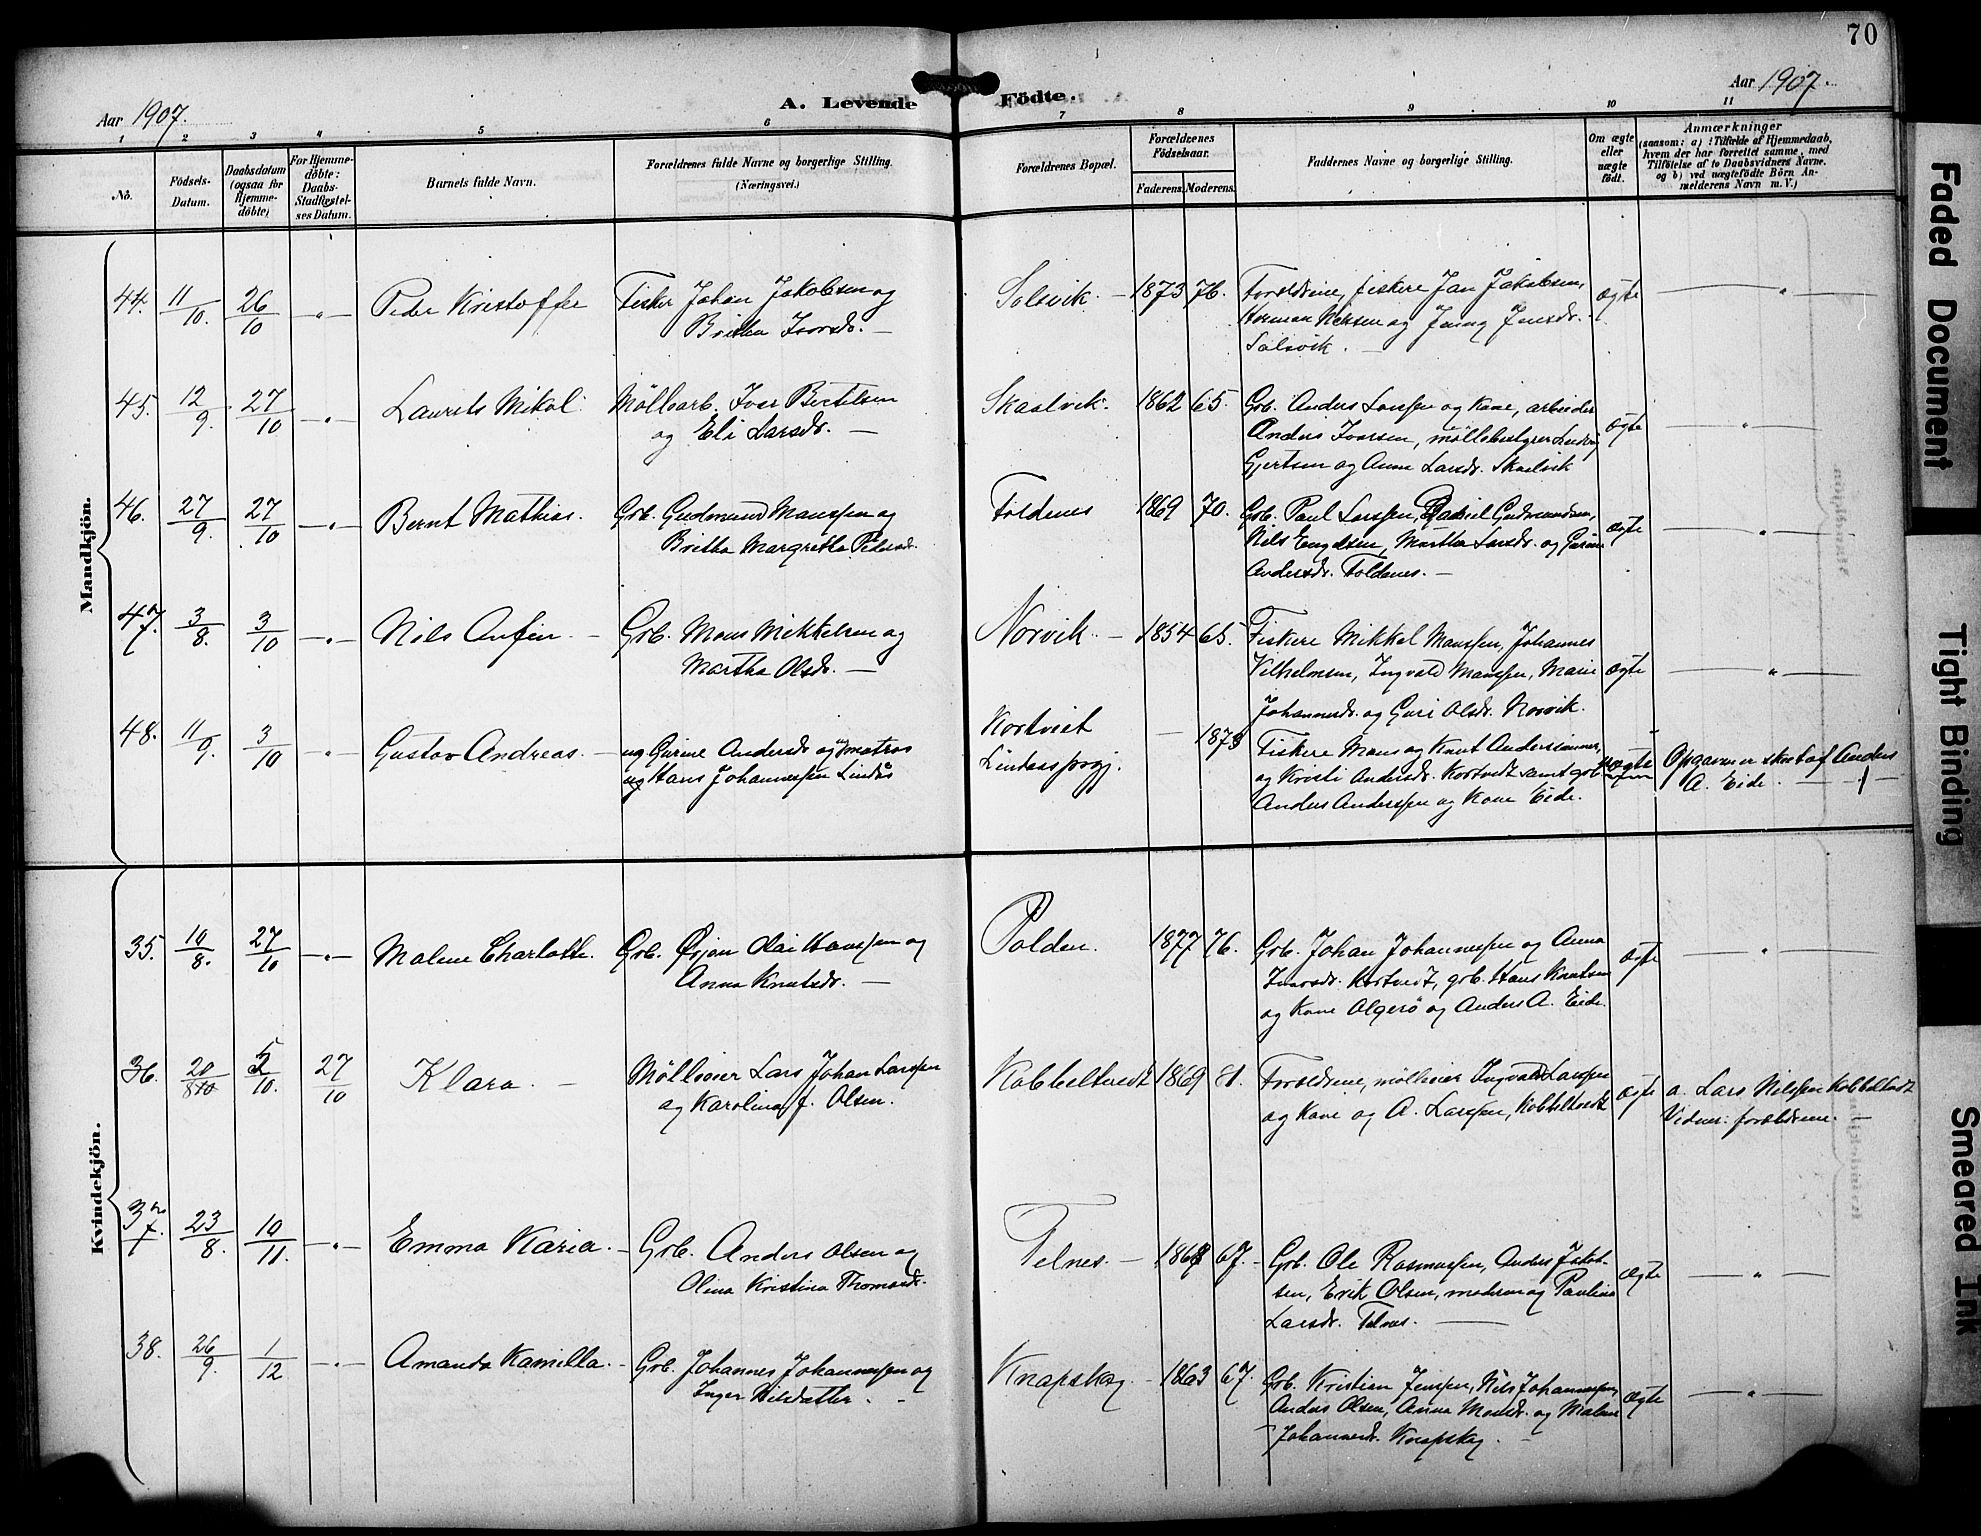 70
Aar 1907.
A. Levende
Födte.
Aar 1907.
1 2 3 4 5 6 7 8 9 10 11
No.
Födsels-
Datum.
Daabsdatum
(ogsaa for
Hjemme-
döbte)
For Hjemme-
döbte:
Daabs-
Stadfæstel-
ses Datum.
Barnets fulde Navn.
Forældrenes fulde Navne og borgerlige Stilling.
(Næringsvei.)
Forældrenes Bopæl.
Forældrenes
Födselsaar.
Faderens. Moderens.
Faddernes Navne og borgerlige Stilling.
Om ægte
eller
uægte
födt.
Anmærkninger
(saasom: a) i Tilfælde af Hjemmedaab,
hvem der har forrettet samme, med
Tilföielse af to Daabsvidners Navne.
og b) ved uægtefödte Börn An-
melderens Navn m. V.)
Mandkjön.
44. 11/10. 26/10 -"- Peder Kristoffer Fisker Johan Jakobsen og
Britha Ivarsdr. —
Solsvik. — 1873 76. Forældrene, fiskere Jan Jakobsen,
Herman Nilsen og Jenny Jensdr.
Solsvik. —
ægte — " —
45. 12/9. 27/10 -"- Laurits Mikal. Möllearb. Ivar Bertelsen
og Eli Larsdr. —
Skaalvik. 1862 65. Grb. Anders Larssen og Kone, arbeider
Anders Ivarsen, möllebestyrer Ludvig
Gjertsen og Anna Larsdr. Skaalvik
ægte — " —
46. 27/9. 27/10 -"- Bernt Mathias. Grb. Gudmund Monssen og
Britha Margretha Pedersdr.
Foldenes 1869 70. Grb. Paul Larssen, Daniel Gudmundsen,
Nils Engelsen, Martha Larsdr. og Gurine
Andersdr. Foldenes. —
ægte — " —
47. 3/8. 3/10 -"- Nils Anfin — Grb. Mons Mikkelsen og
Martha Olsdr. —
Norvik. — 1854 65. Fiskere Mikkel Monssen, Johannes
Vilhelmsen, Ingvald Monssen, Marie
Johannesdr. og Guri Olsdr. Norvik.
ægte — " —
48. 11/9. 3/10 -"- Gustav Andreas. — ug Gurine Andersdr og ugmatros
ug Hans Johannessen Lindås
Kortveit
Lindaasprgj.
— 1873 Fiskere Mons og Knut Anderssönner,
og Kristi Andersdr. Kortvedt samt grb
Anders Anderssen og Kone Eide.
uægte
Opgaven er skrevet af Anders
A. Eide. —
Kvindekjön.
35. 10/8. 27/10 -"- Malene Charlotte. Grb. Ørjan Olai Hanssen og
Anna Knutsdr. —
Polden. 1877 76. Grb. Johan Johannessen og Anna
Ivarsdr. Kortvedt, grb. Hans Knutsen
og Kone Algerö og Anders A. Eide.
ægte — " —
36. 20/8 5/10. 27/10 Klara. — Mölleeier Lars Johan Larssen
og Karolina f. Olsen.
Kobbeltvedt 1869 81. Forældrene, mölleeier Ingvald Larssen
og Kone og A. Larssen, Kobbeltvedt
ægte a. Lars Nilssen Kobbeltvedt
Vidner: forældrene. —
37. 23/8. 10/11. -"- Emma Karia. — Grb. Anders Olsen og
Olina Kristina Thomasdr.
Telnes. — 1868 67. — Grb. Ole Rasmussen, Anders Jakob-
sen, Erik Olsen, moderen og Paulina
Larsdr. Telnes. —
ægte — " —
38. 26/9. 1/12 -"- Amanda Kamilla. — Grb. Johannes Johannessen og
Inger Nilsdatter. —
Knapskog. — 1863 67. Grb. Kristian Jenssen, Nils Johannessen,
Anders Olsen, Anna Monsdr. og Malene
Johannesdr. Knapskog. —
ægte — " —
Faded Document
Tight Binding
Smeared Ink